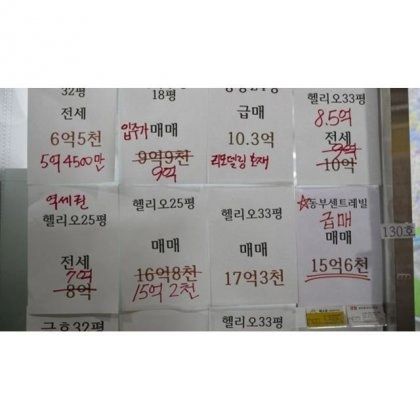 32평
전세
6억5천
5억4500만
18평
입주가 매매
9억9천
9억
급매
10.3억
리모델링 호재
헬리오33평
8.5억
전세
9억
10억
역세권
헬리오25평
전세
7억
8억
헬리오25평
매매
16억8천
15억2천
헬리오33평
매매
17억3천
☆동부센트레빌
급매
매매
15억6천
130호
금호32평
헬리오33평